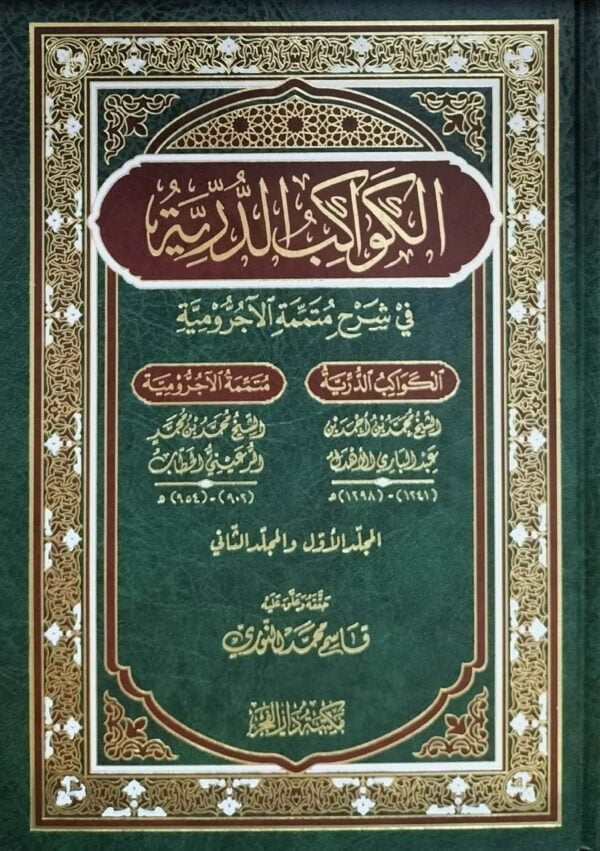 الكَوَاكِبُ الدُّرِّيَّةُ
فِي شَرْحِ مُتَمِّمَةِ الْآجُرُّومِيَّةِ
الكَوَاكِبُ الدُّرِّيَّةُ
الشيخ محمد بن أحمد بن
عبد الباري الأهدل
(١٢٤١) - (١٢٩٨) هـ
مُتَمِّمَةُ الآجُرُّومِيَّةِ
الشيخ محمد بن محمد
الرعيني الحطاب
(٩٠٢) - (٩٥٤) هـ
المجلد الأوّل والمجلد الثّاني
حققه وعلق عليه
قاسم محمد النوري
مكتبة دار الفجر